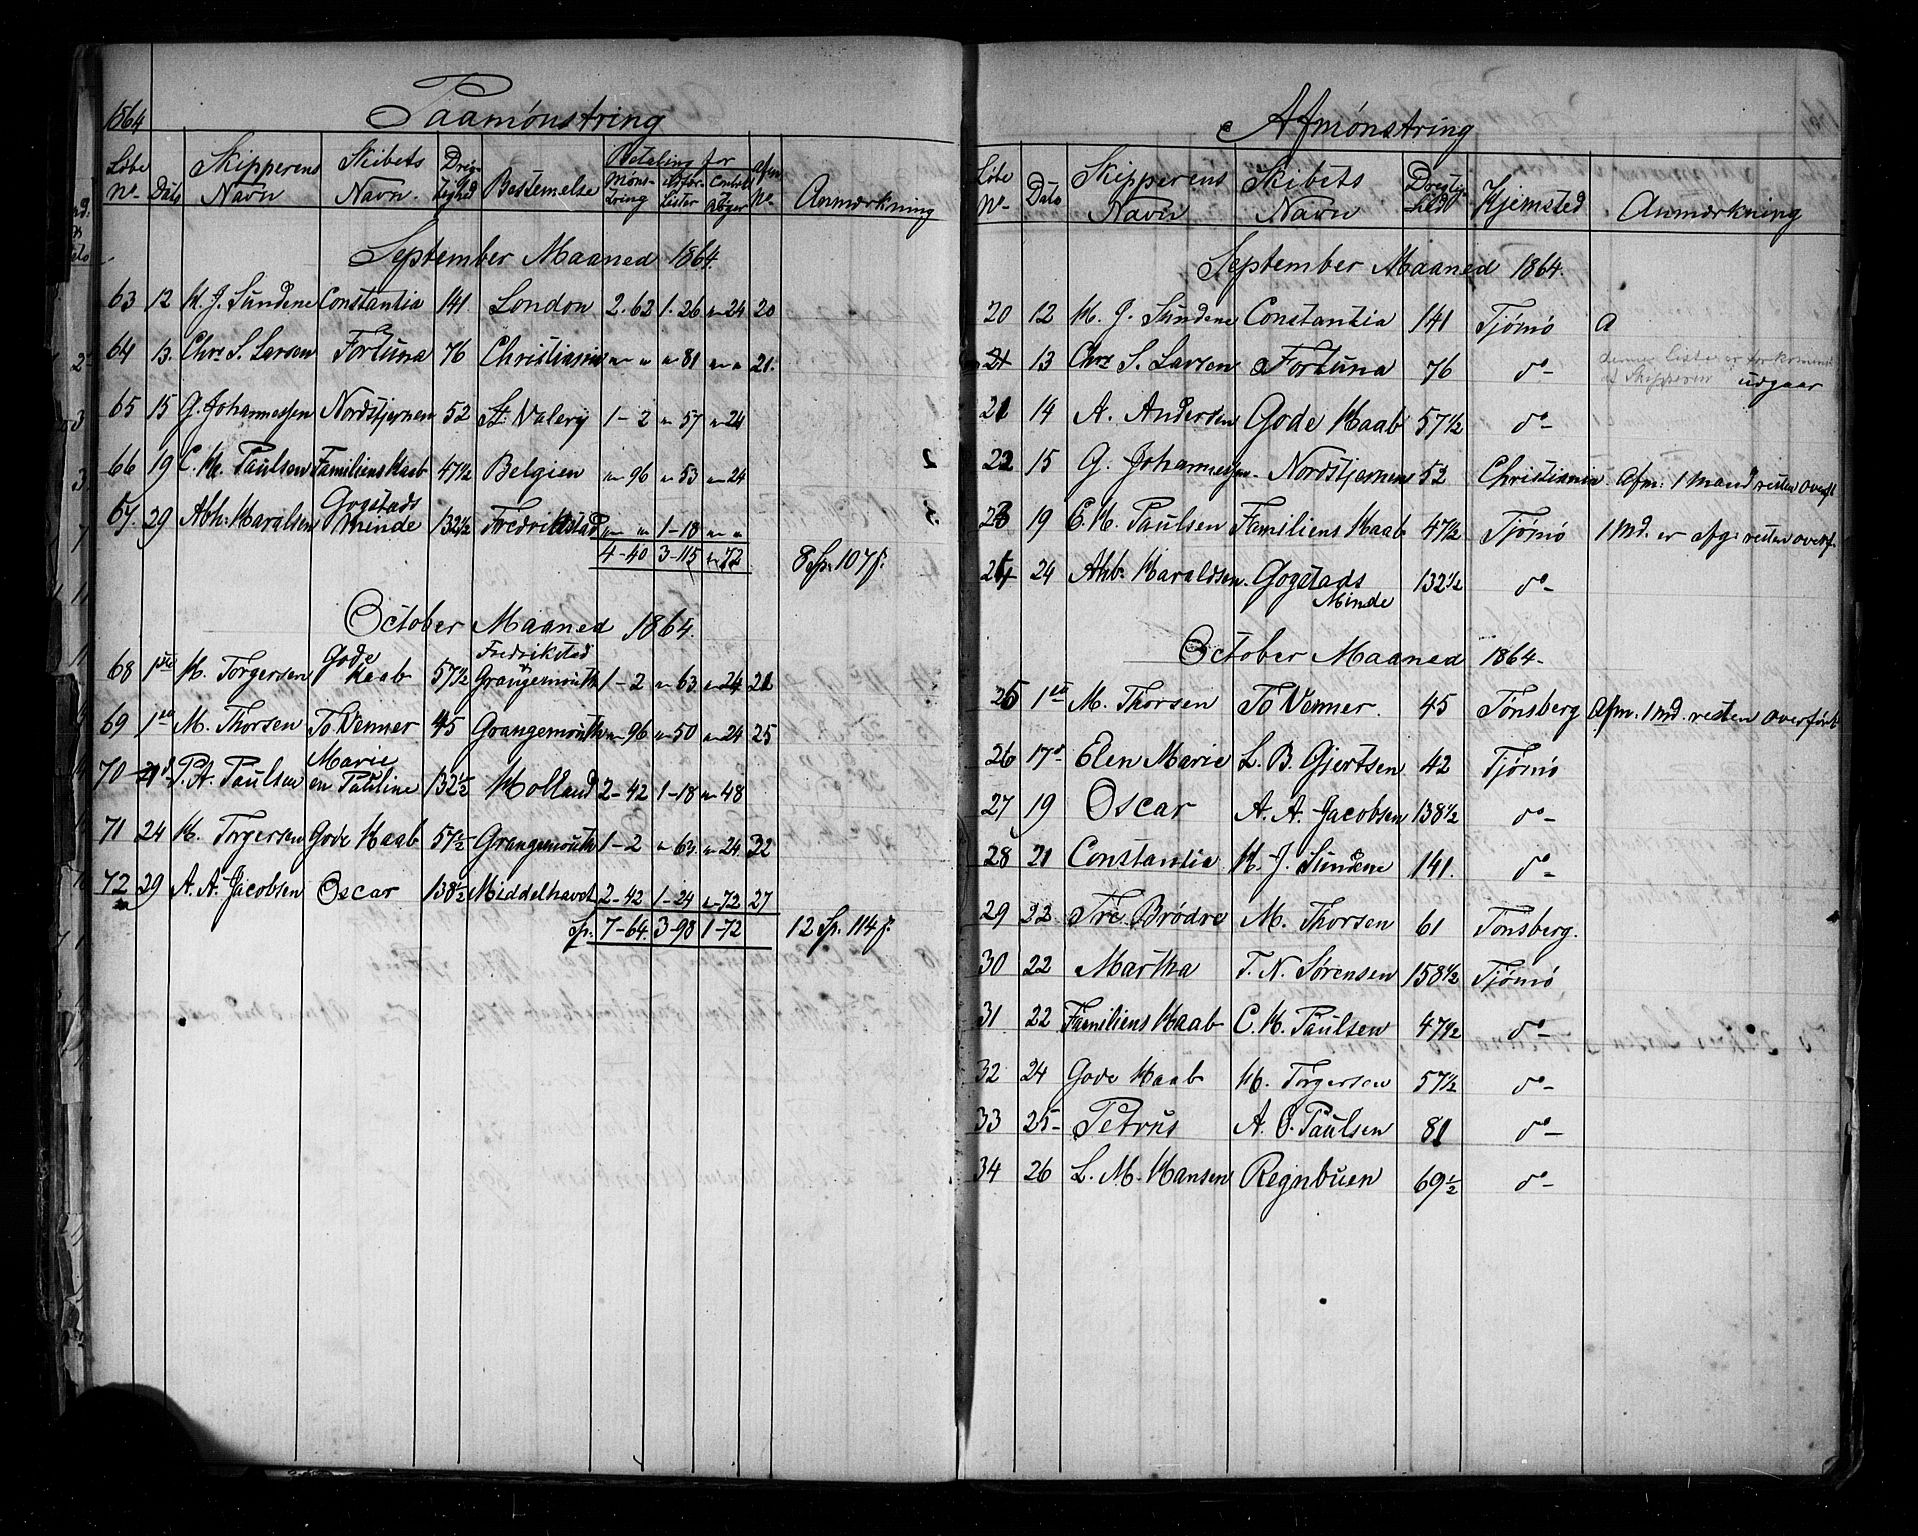 1864 Paamönstring
Löbe No. Dato Skipperens Navn Skibets Navn. Dræg- tighed Bestemelse Betaling for Möns- tring Afm No. Anmærkning
September Maaned 1864.
63 12 H. J. Sundene Constantia 141. London 2-62 1-26 „-24 20
64 13. Chrs S. Larsen Fortuna 76 Christiania „ „ „ 81 „ „ 21.
65 15 G. Johannessen Nordstjernen 52 St. Valery 1-2 „ 57 „-24
66 19 C. H. Paulsen Familiens Haab 47½ Belgien „-96 „-53 „-24
67. 29 Abh. Haraldsen Gogstads Minde 132½ Fredrikstad „ „ 1-18 „ „
4-40 3-115 „-72 8 Sp. 107 f.
October Maaned 1864.
68 1ste H. Torgersen Gode Haab 57½ Fredrikstad & Grangemouth 1-2 „-63 „-24 21
69 1ste M. Thorsen To Venner 45 Grangemouth „-96 „-50 „-24 25
70 P. A. Paulsen Marie en Pauline 132½ Holland 2-42 1-18 „-48
71 24 H. Torgersen Gode Haab 57½ Grangemouth 1-2 „-63. „-24. 32
72 29 A. A. Jacobsen Oscar 138½ Middelhavet 2-42 1-24 „-72 27
Sp. 7-64. 3-98 1-72 12 Sp. 114 f.
Afmönstring
Löbe No. Dato Skipperens Navn Skibets Navn Drægtig- hed Hjemsted Anmærkning
September Maaned 1864.
20 12 H. J. Sundene Constantia 141 Tjömö A
21 13 Chrs S. Larsen Fortuna 76 do- denne Liste er forkommet af Skipperen udgaar
21 14 A. Andersen Gode Haab 57½ do-
22 15 G. Johannessen. Nordstjernen 52 Christiania Afm: 1 mand resten overf
23 19 C. H. Paulsen Familiens Haab 47½ Tjömö 1 Md. er Afg. resten overf.
24 24 Abh. Haraldsen. Gogstads Minde 132½ do-
October Maaned 1864-
25 1ste M. Thorsen To Venner. 45 Tönsberg Afm. 1 Md. resten overfört
26 17d Elen Marie L. B. Gjertsen 42 Tjömö
27 19 Oscar A. A. Jacobsen 138½ do-
28 21 Constantia H. J. Sundene 141. do-
29 22 Tre Brödre M. Thorsen 61 Tönsberg.
30 22 Martha T. N. Sörensen 158½ Tjömö
31 22 Familiens Haab C. H. Paulsen 47½ do-
32 24 Gode Haab H. Torgersen 57½ do-
33 25- Petrus A. O. Paulsen 81 do-
34 26 L. M. Hansen Regnbuen 69½ do-